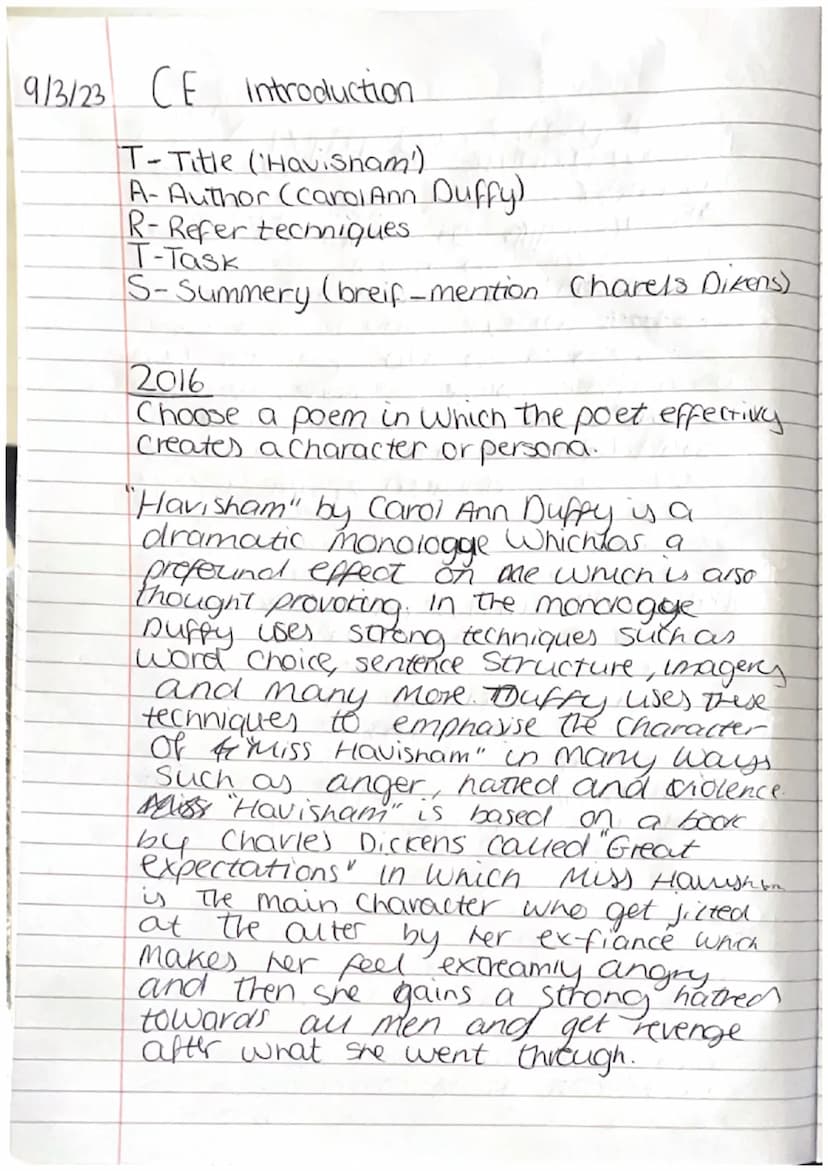 9/3/23 CE Introduction
T- Title ('Havisham')
A- Author (Carol Ann Duffy)
R- Refer tecniques
T-Task
S- Summery (breif-mention Charels Dikens)
2016
Choose a poem in which the poet effectivly
creates a character or persona.
"Havisham" by Carol Ann Duffy is a
dramatic monologge which has a
profound effect on me which is also
thought provoking. In the monologge
Duffy uses strong techniques such as
word choice, sentence structure, imagery
and many more. Duffy uses these
techniques to emphasise the character
of "Miss Havisham" in many ways
such as anger, hatred and violence.
"Havisham" is based on a book
by Charles Dickens called "Great
expectations" in which Miss Havisham
is the main character who get jilted
at the alter by her ex-fiancé which
makes her feel extreamly angry
and then she gains a strong hatred
towards all men and get revenge
after what she went through.